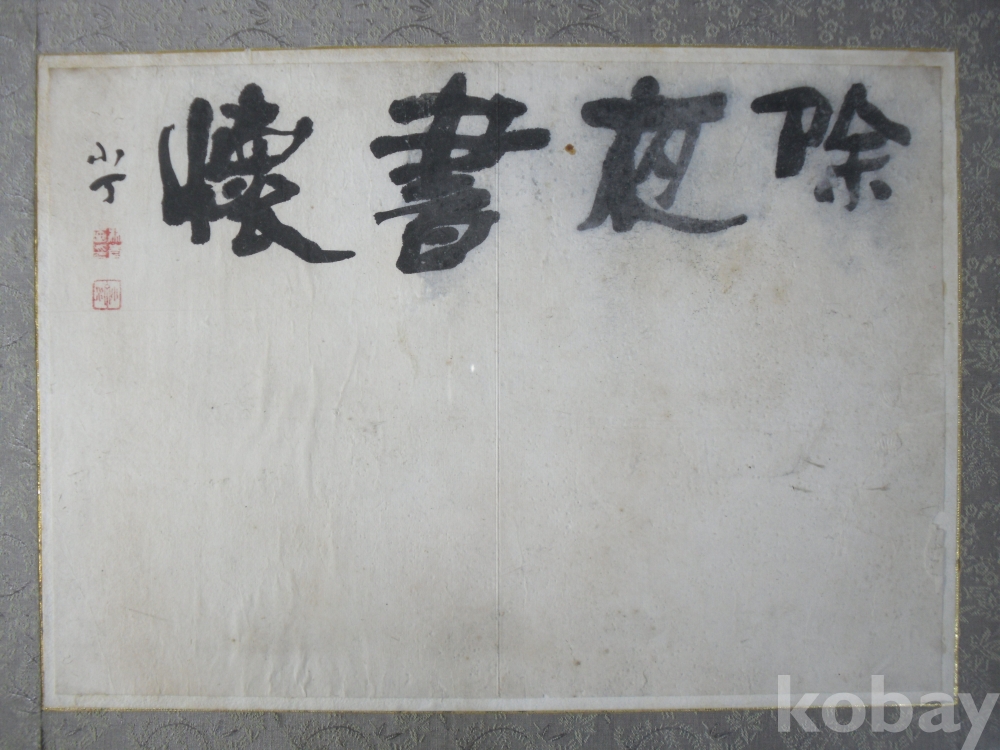 除夜書懷
小丁
kobay